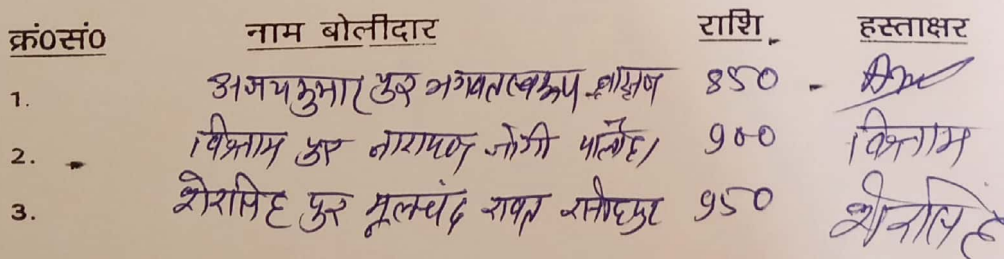 क्रं०सं० नाम बोलीदार राशि. हस्ताक्षर
1. अजयकुमार पुत्र भगवतस्वरूप ब्राह्मण 850 -
2. विश्राम पुत्र नारायण जोगी 900 विश्राम
3. शेरसिंह पुत्र मूलचंद रावत 950 शेरसिंह